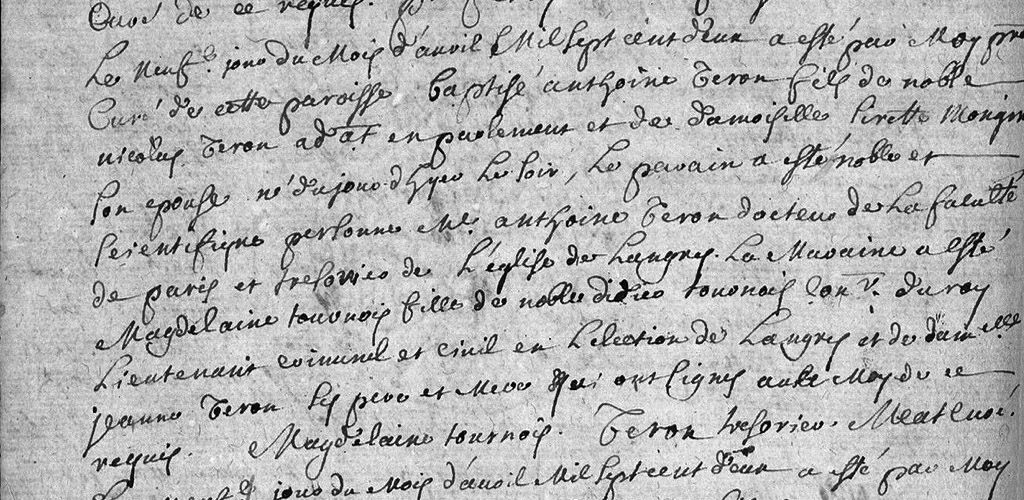 Curé de ce requis.
Le Neufe. jour du Mois d'auril Mil sept cent deux a esté par Moy pre
Curé de cette paroisse baptisé anthoine Teron fils de noble
nicolas Teron adat. en parlement et de damoiselle Mongin
son epouse né du jour d'hyer le soir, le parain a esté noble et
scientifique personne Me. anthoine Teron docteur de la faculté
de paris et tresorier de L'église de Langres. La Maraine a esté
Magdelaine tournois fille de noble didier tournois Conr. du roy
Lieutenant criminel et civil en L'election de Langres et de damelle
jeanne Teron ses pere et Mere qui ont signés avec Moy de ce
requis. Magdelaine tournois. Teron tresorier.
jour du Mois d'auril Mil sept cent deux a esté par Moy